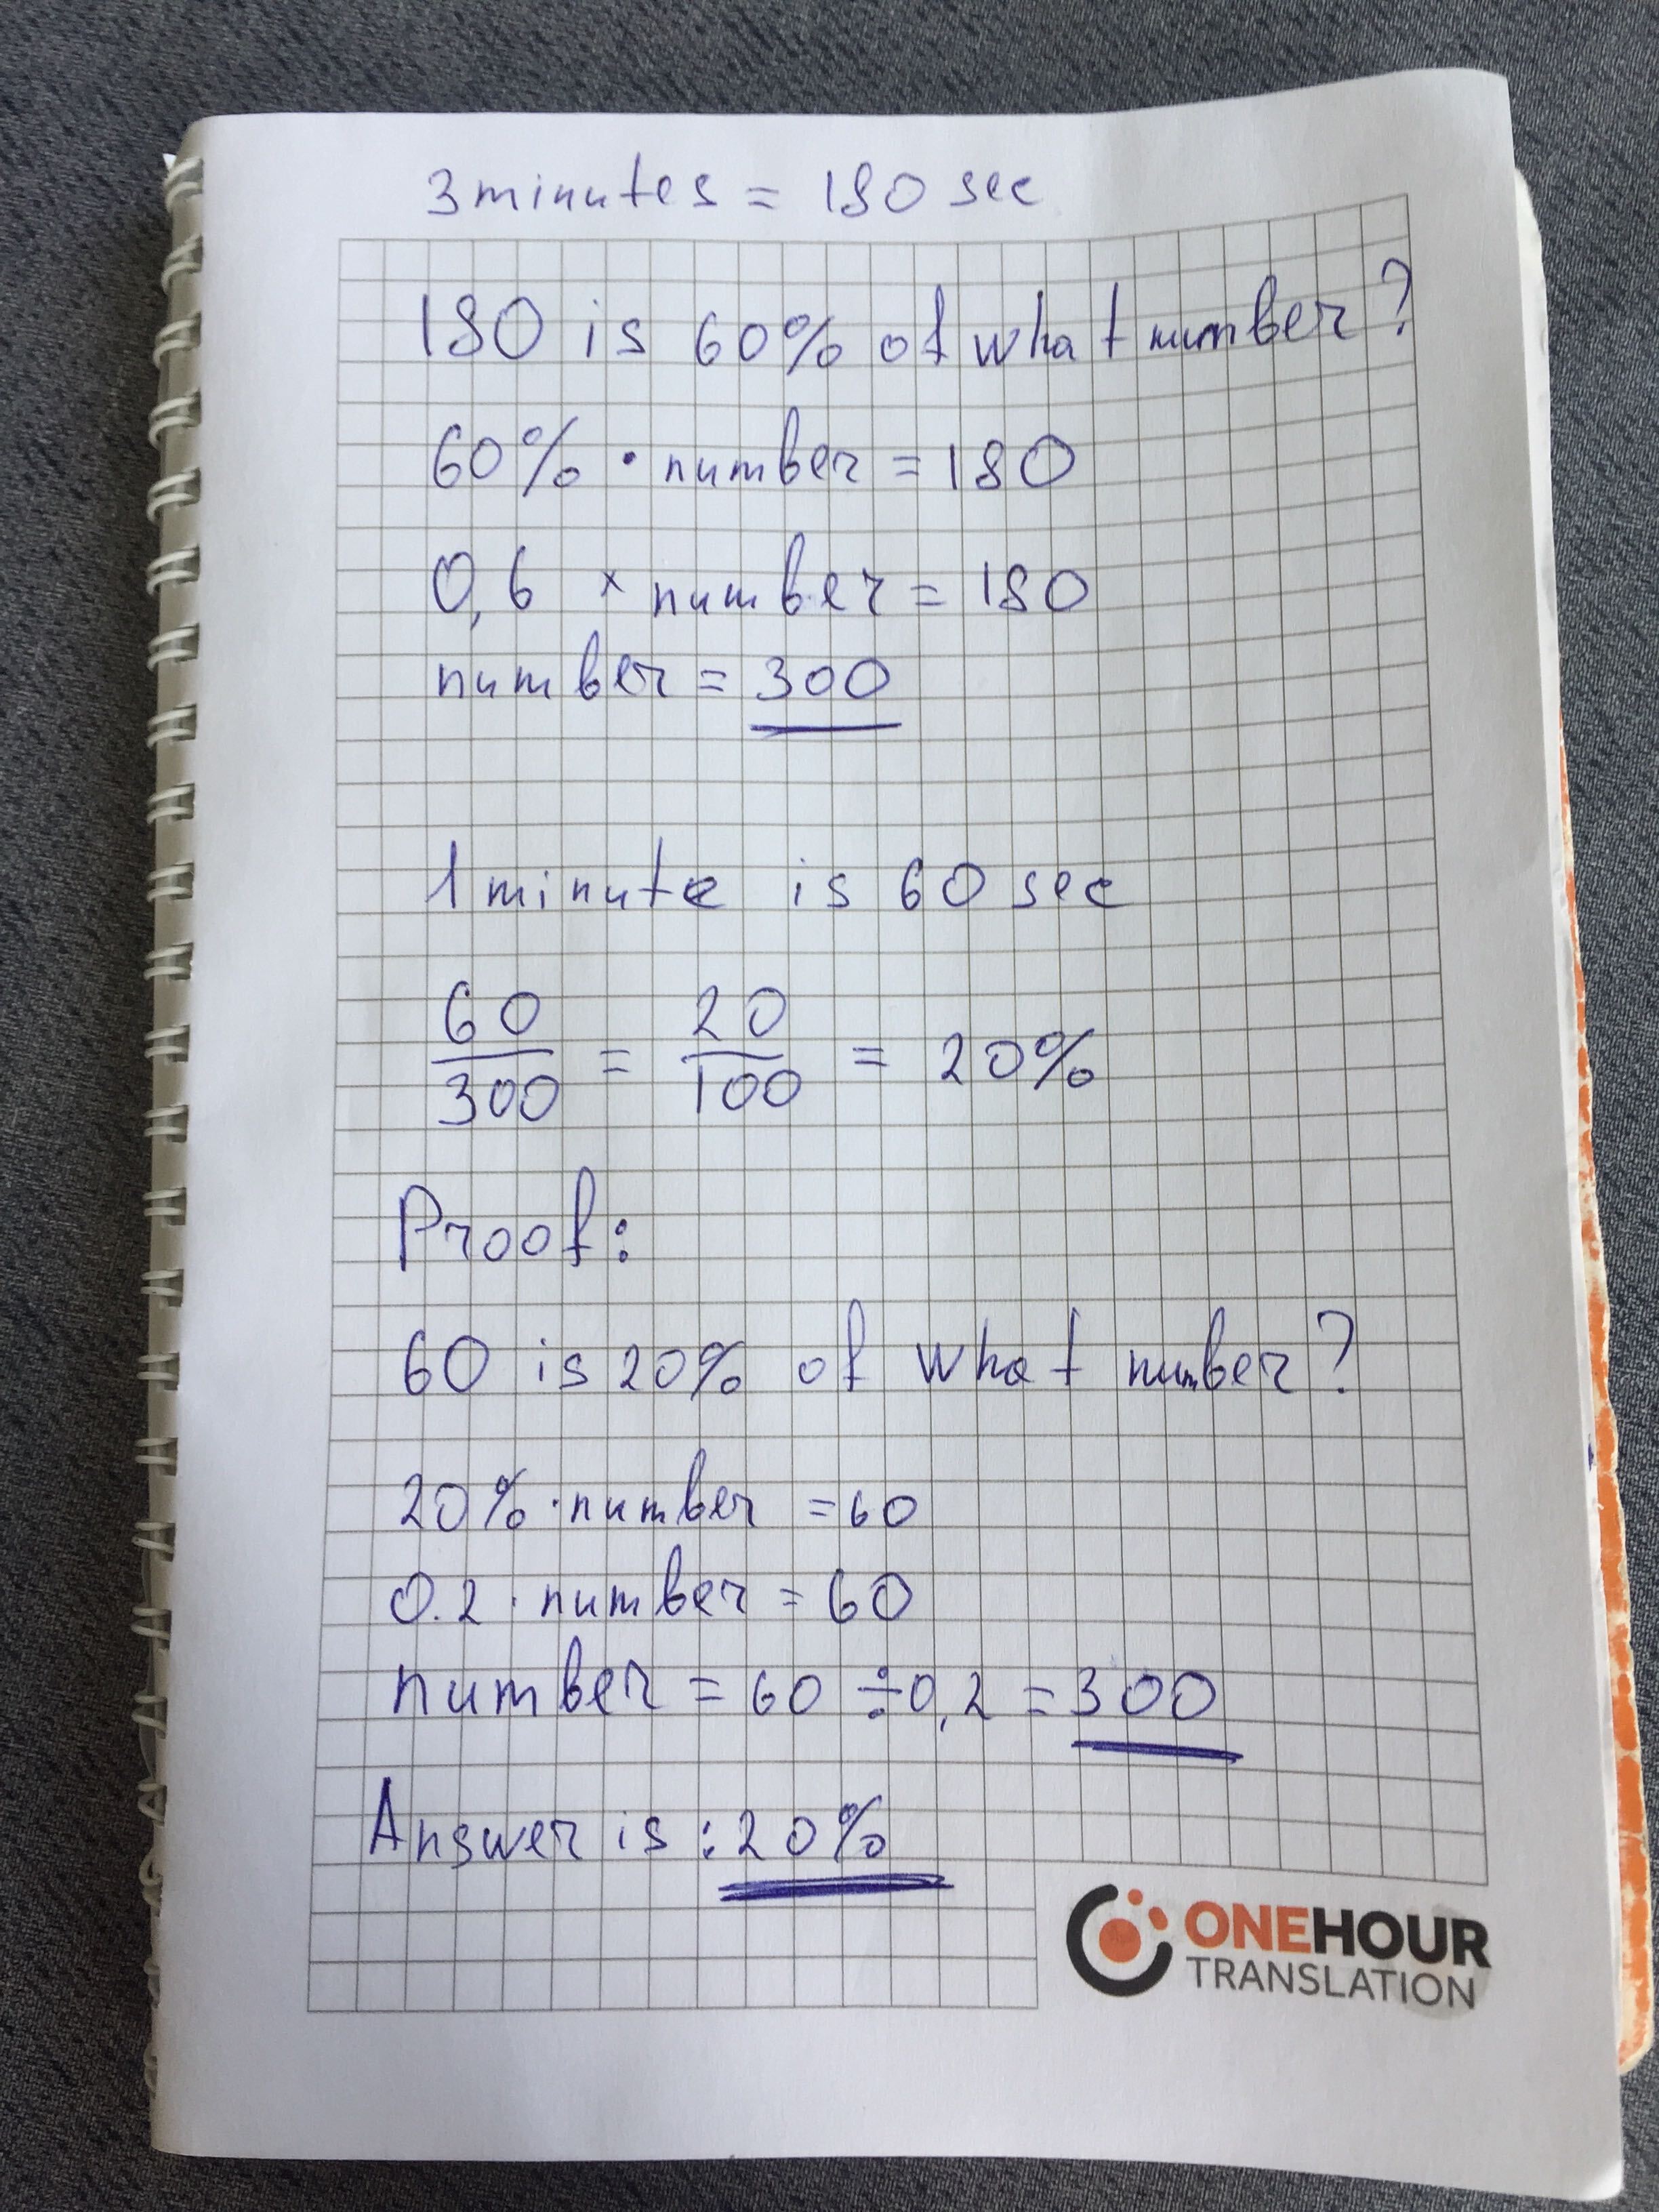 3 minutes = 180 sec
180 is 60% of what number?
60% · number = 180
0,6 × number = 180
number = 300
1 minute is 60 sec
60/300 = 20/100 = 20%
Proof:
60 is 20% of what number?
20% · number = 60
0.2 · number = 60
number = 60 ÷ 0,2 = 300
Answer is: 20%
ONEHOUR
TRANSLATION